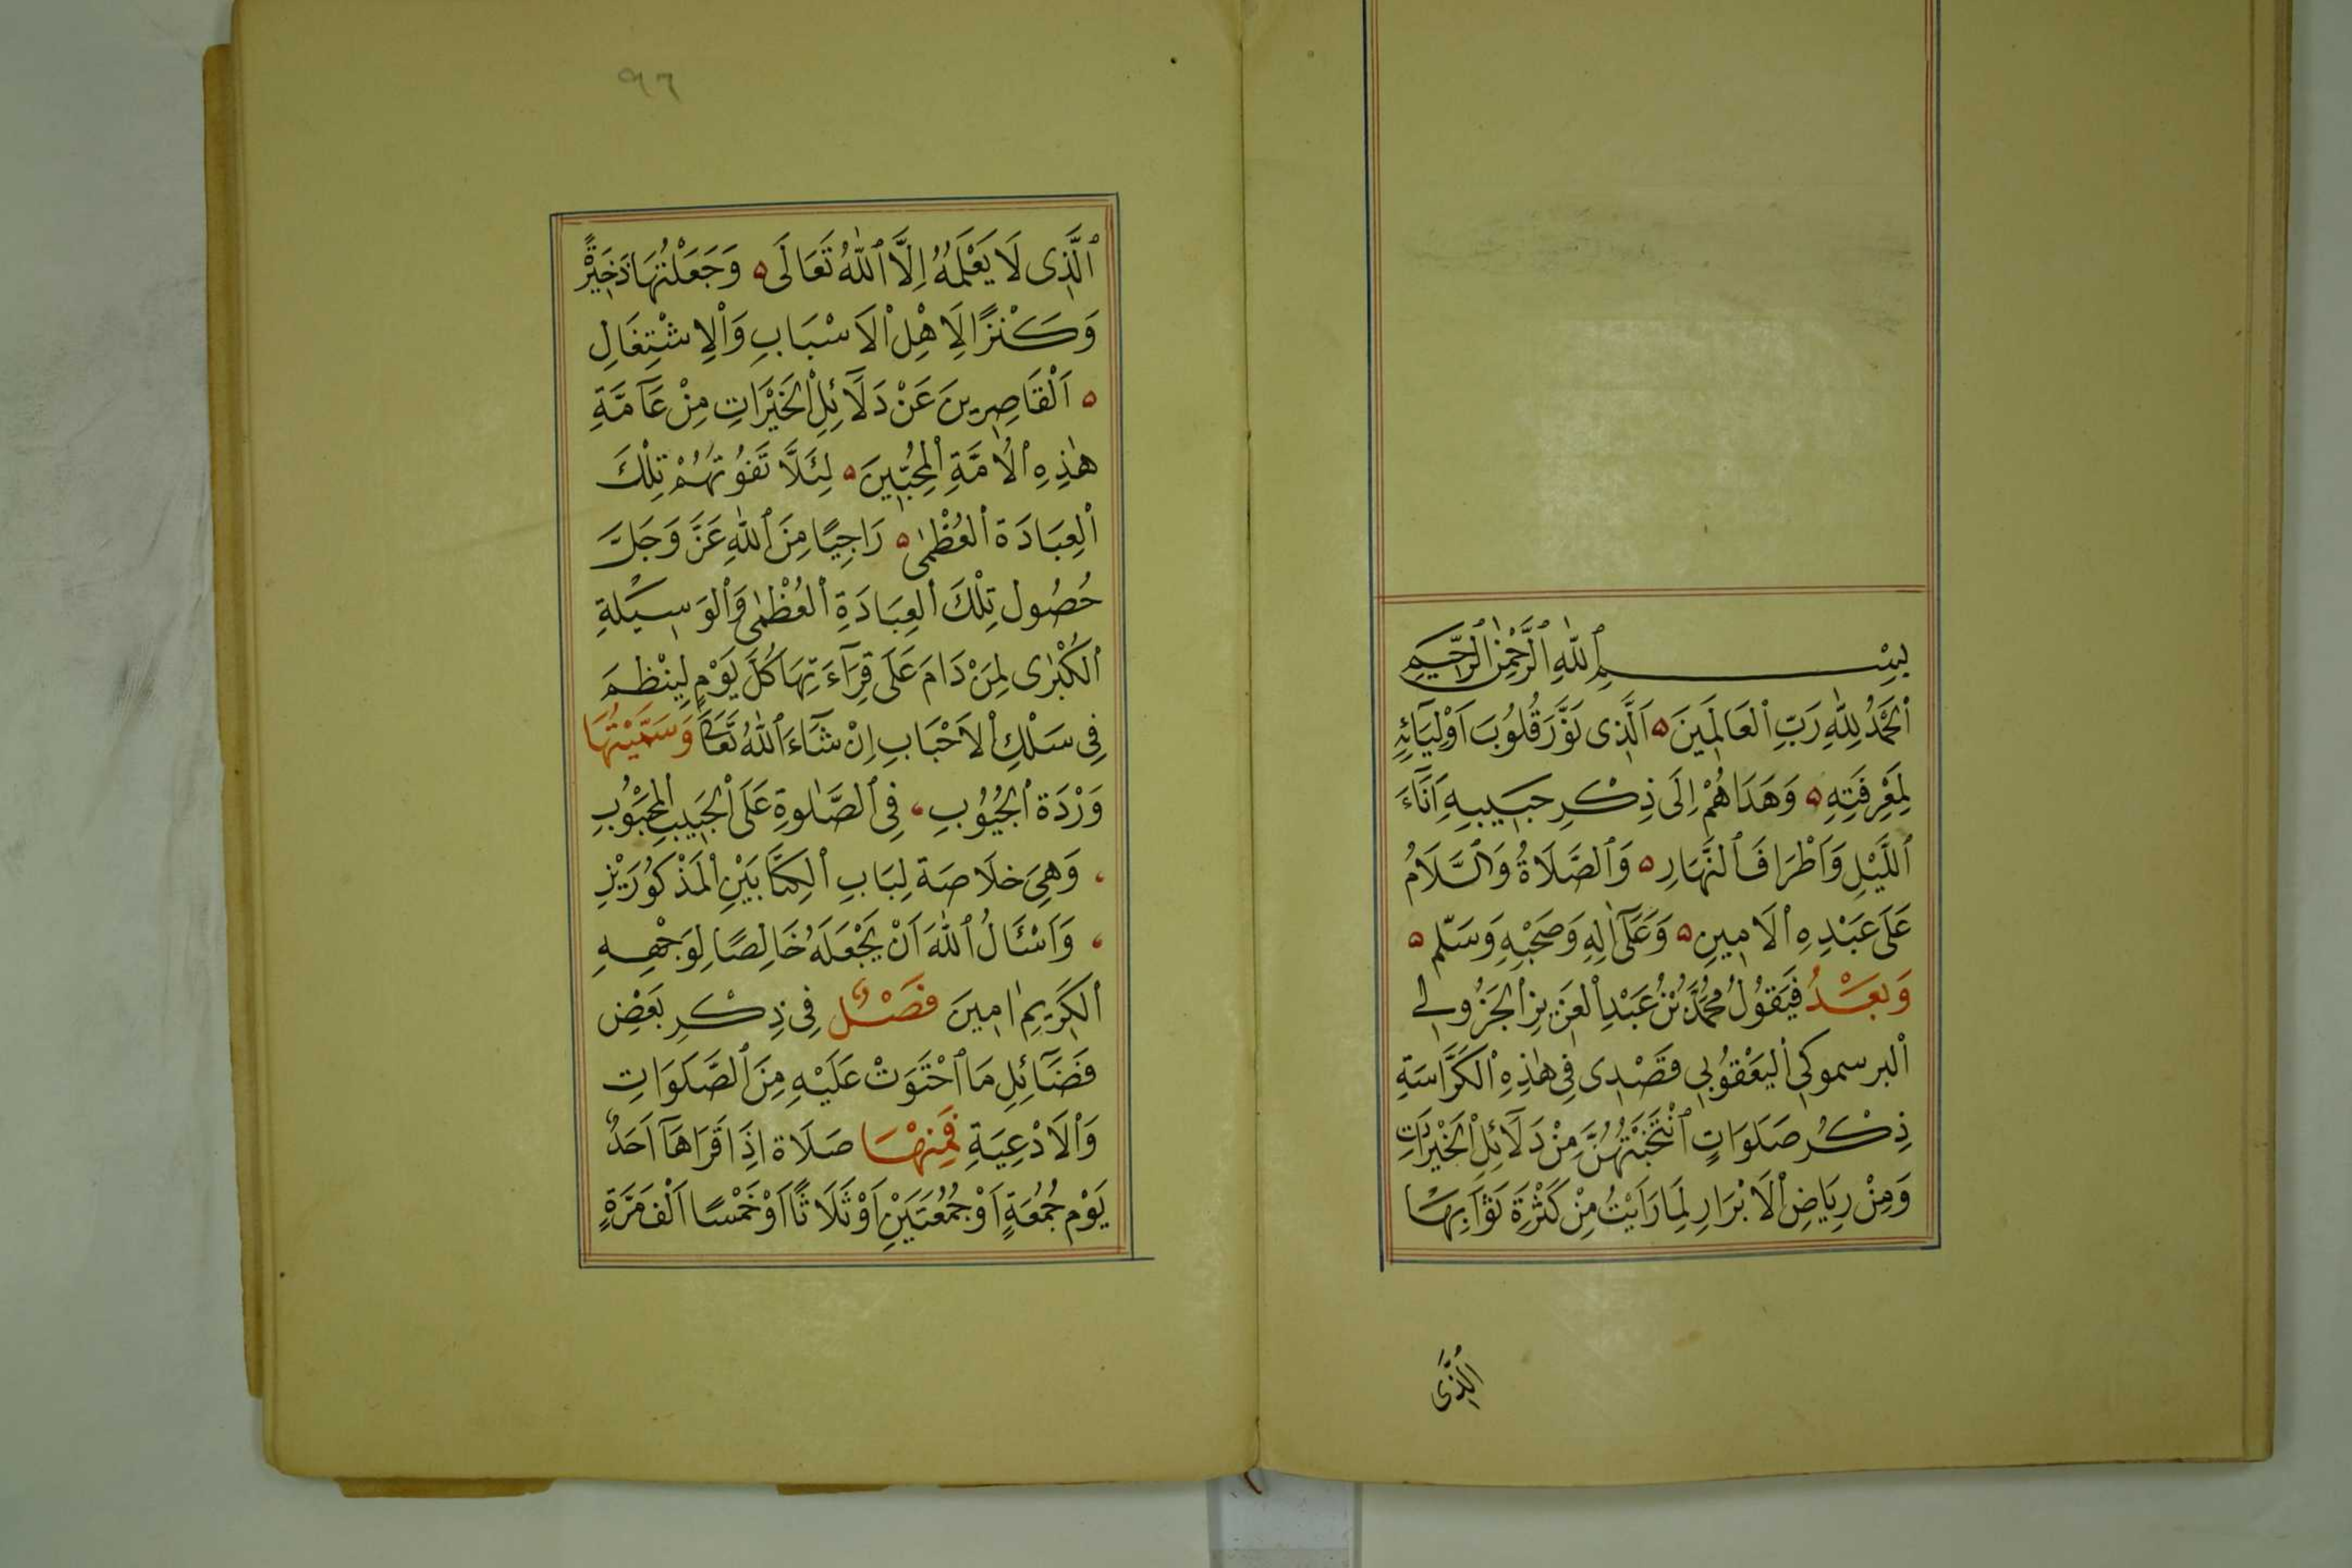 بِسْمِ ٱللّٰهِ ٱلرَّحْمٰنِ ٱلرَّحِيمِ
ٱلْحَمْدُ لِلّٰهِ رَبِّ ٱلْعَالَمِينَ ه اَلَّذِى نَوَّرَ قُلُوبَ اَوْلِيَآئِهِ
لِمَعْرِفَتِهِ ه وَهَدَاهُمْ اِلَى ذِكْرِ حَبِيبِهِ اَنَآءَ
ٱللَّيْلِ وَاَطْرَافَ ٱلنَّهَارِ ه وَٱلصَّلَاةُ وَٱلسَّلَامُ
عَلَى عَبْدِهِ ٱلْاَمِينِ ه وَعَلَىٰٓ اٰلِهِ وَصَحْبِهِ وَسَلَّمَ ه
وَبَعْدُ فَيَقُولُ مُحَمَّدُ بْنُ عَبْدِ ٱلْعَزِيزِ ٱلْجَزُولِي
ٱلبرسموكي ٱلْيَعْقُوبِي قَصْدِى فِى هٰذِهِ ٱلْكُرَّاسَةِ
ذِكْرُ صَلَوَاتٍ ٱنْتَخَبْتُهُنَّ مِنْ دَلَآئِلِ ٱلْخَيْرَاتِ
وَمِنْ رِيَاضِ ٱلْاَبْرَارِ لِمَا رَاَيْتُ مِنْ كَثْرَةِ ثَوَابِهَا
ٱلَّذِى
٩٦
ٱلَّذِى لَا يَعْلَمُهُ اِلَّا ٱللّٰهُ تَعَالَى ه وَجَعَلْتُهَا ذَخِيرَةً
وَكَنْزًا لِاَهْلِ ٱلْاَسْبَابِ وَٱلْاِشْتِغَالِ
ه اَلْقَاصِرِينَ عَنْ دَلَآئِلِ ٱلْخَيْرَاتِ مِنْ عَآمَّةِ
هٰذِهِ ٱلْاُمَّةِ ٱلْمُحِبِّينَ ه لِئَلَّا تَفُوتَهُمْ تِلْكَ
ٱلْعِبَادَة ٱلْعُظْمٰى ه رَاجِيًا مِنَ ٱللّٰهِ عَزَّ وَجَلَّ
حُصُول تِلْكَ ٱلْعِبَادَةِ ٱلْعُظْمٰى وَٱلْوَسِيلَةِ
ٱلْكُبْرٰى لِمَنْ دَامَ عَلَى قِرَآءَتِهَا كُلَّ يَوْمٍ لِيَنْظِمَ
فِى سَلْكِ ٱلْاَحْبَابِ اِنْ شَآءَ ٱللّٰهُ تَعَالَى وَسَمَّيْتُهَا
وَرْدَة ٱلْجُيُوبِ ، فِى ٱلصَّلٰوةِ عَلَى ٱلْحَبِيبِ ٱلْمَحْبُوبِ
، وَهِىَ خلَاصَة لِبَابِ ٱلْكِتَابَيْنِ ٱلْمَذْكُورَيْنِ
، وَاَسْئَالُ ٱللّٰهَ اَنْ يَجْعَلَهُ خَالِصًا لِوَجْهِهِ
ٱلْكَرِيمِ اٰمِينَ فَصْلٌ فِى ذِكْرِ بَعْضِ
فَضَآئِلِ مَا ٱحْتَوَتْ عَلَيْهِ مِنَ ٱلصَّلَوَاتِ
وَٱلْاَدْعِيَةِ فَمِنْهَا صَلَاة اِذَا قَرَاَهَآ اَحَدٌ
يَوْم جُمُعَةٍ اَوْ جُمُعَتَيْنِ اَوْ ثَلَاثًا اَوْ خَمْسًا اَلْف مَرَّةٍ